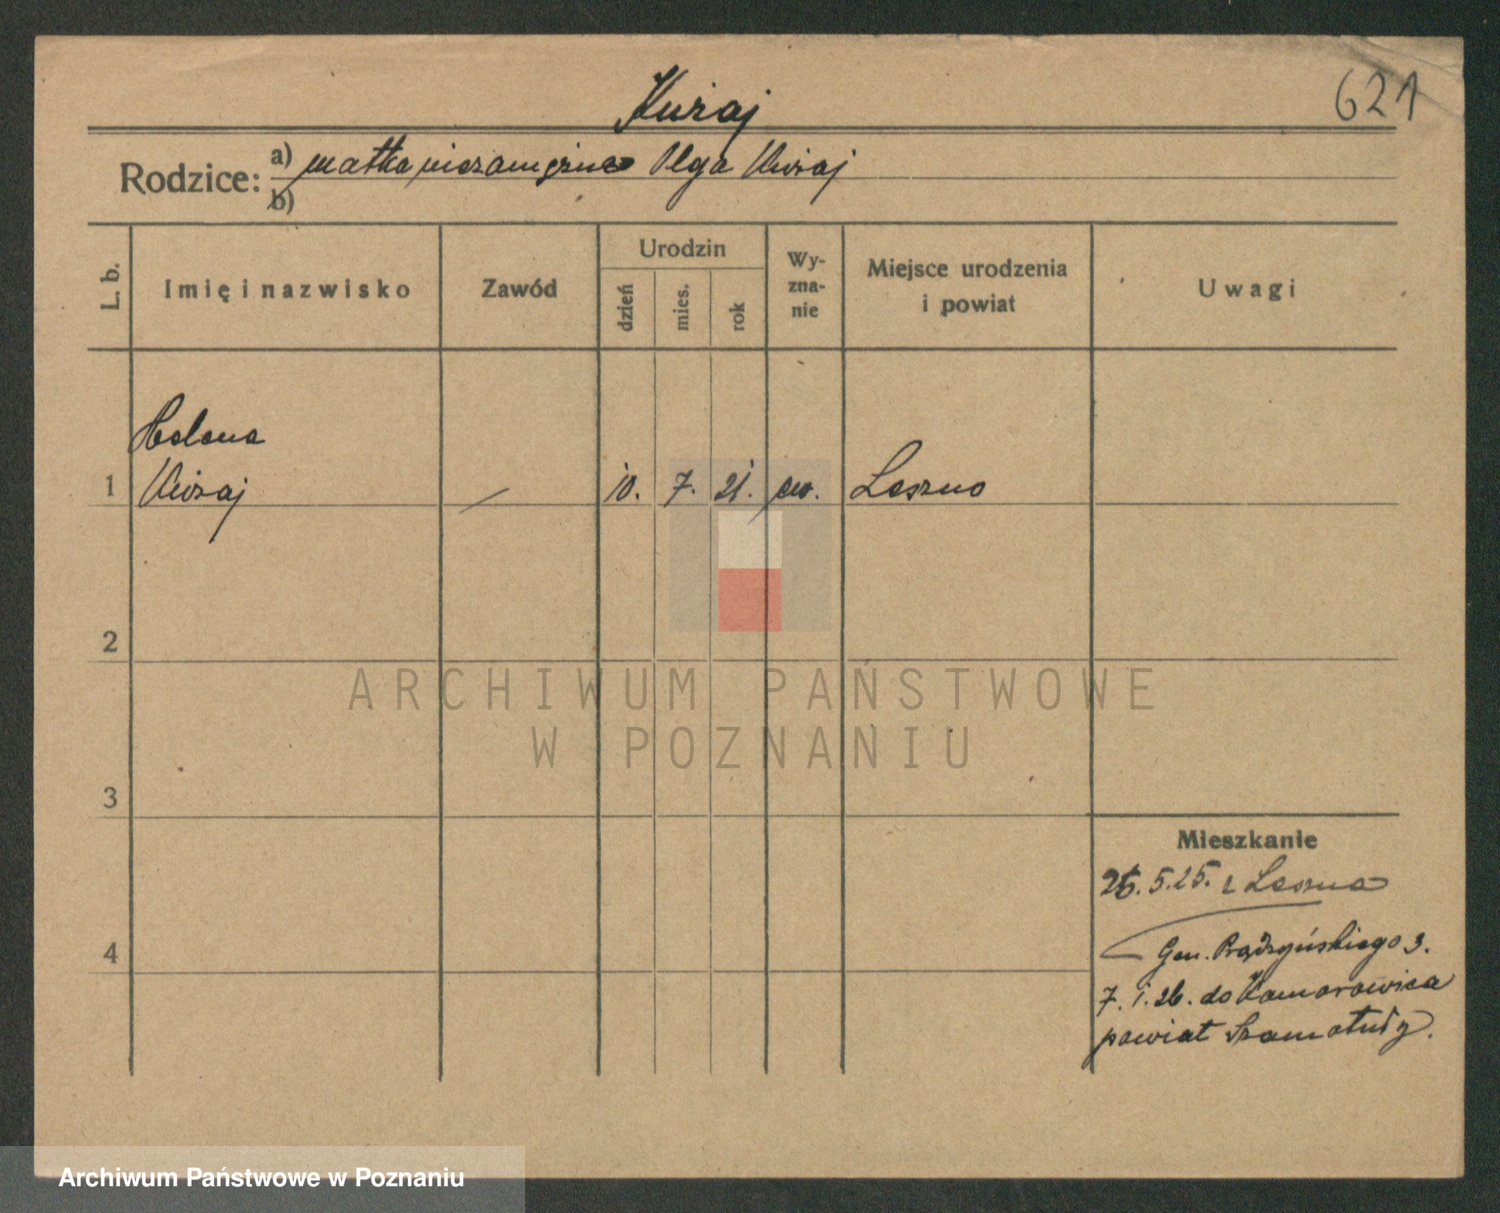 Kuraj
621
Rodzice:
a) matka niezamężna Olga Kuraj
b)
L. b.
Imię i nazwisko
Zawód
Urodzin
dzień
mies.
rok
Wy-
zna-
nie
Miejsce urodzenia
i powiat
Uwagi
Helena
1 Kuraj — 10. 7. 21. ew. Leszno
2
3
4
Mieszkanie
26.5.25. z Leszna
Gen. Prądzyńskiego 3.
7.1.26. do Komorowica
powiat Szamotuły.
ARCHIWUM PAŃSTWOWE
W POZNANIU
Archiwum Państwowe w Poznaniu